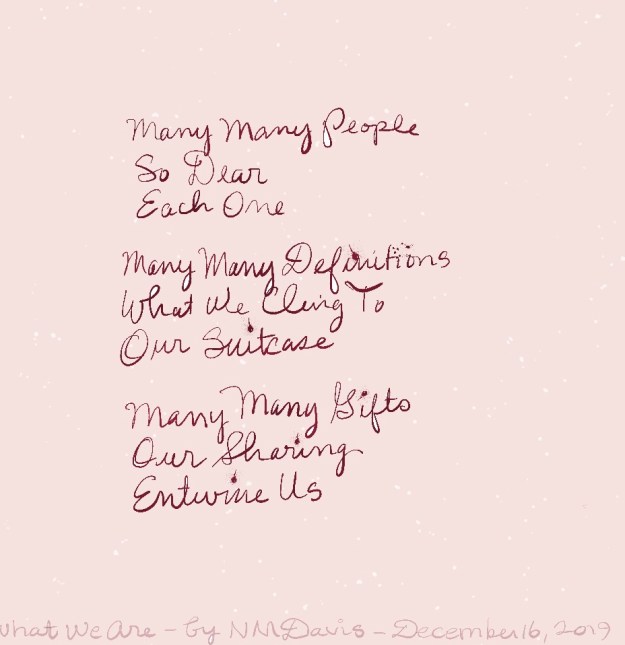 Many Many People
So Dear
Each One
Many Many Definitions
What We Cling To
Our Suitcase
Many Many Gifts
Our Sharing
Entwine Us
What We Are - by NMDavis - December16, 2019